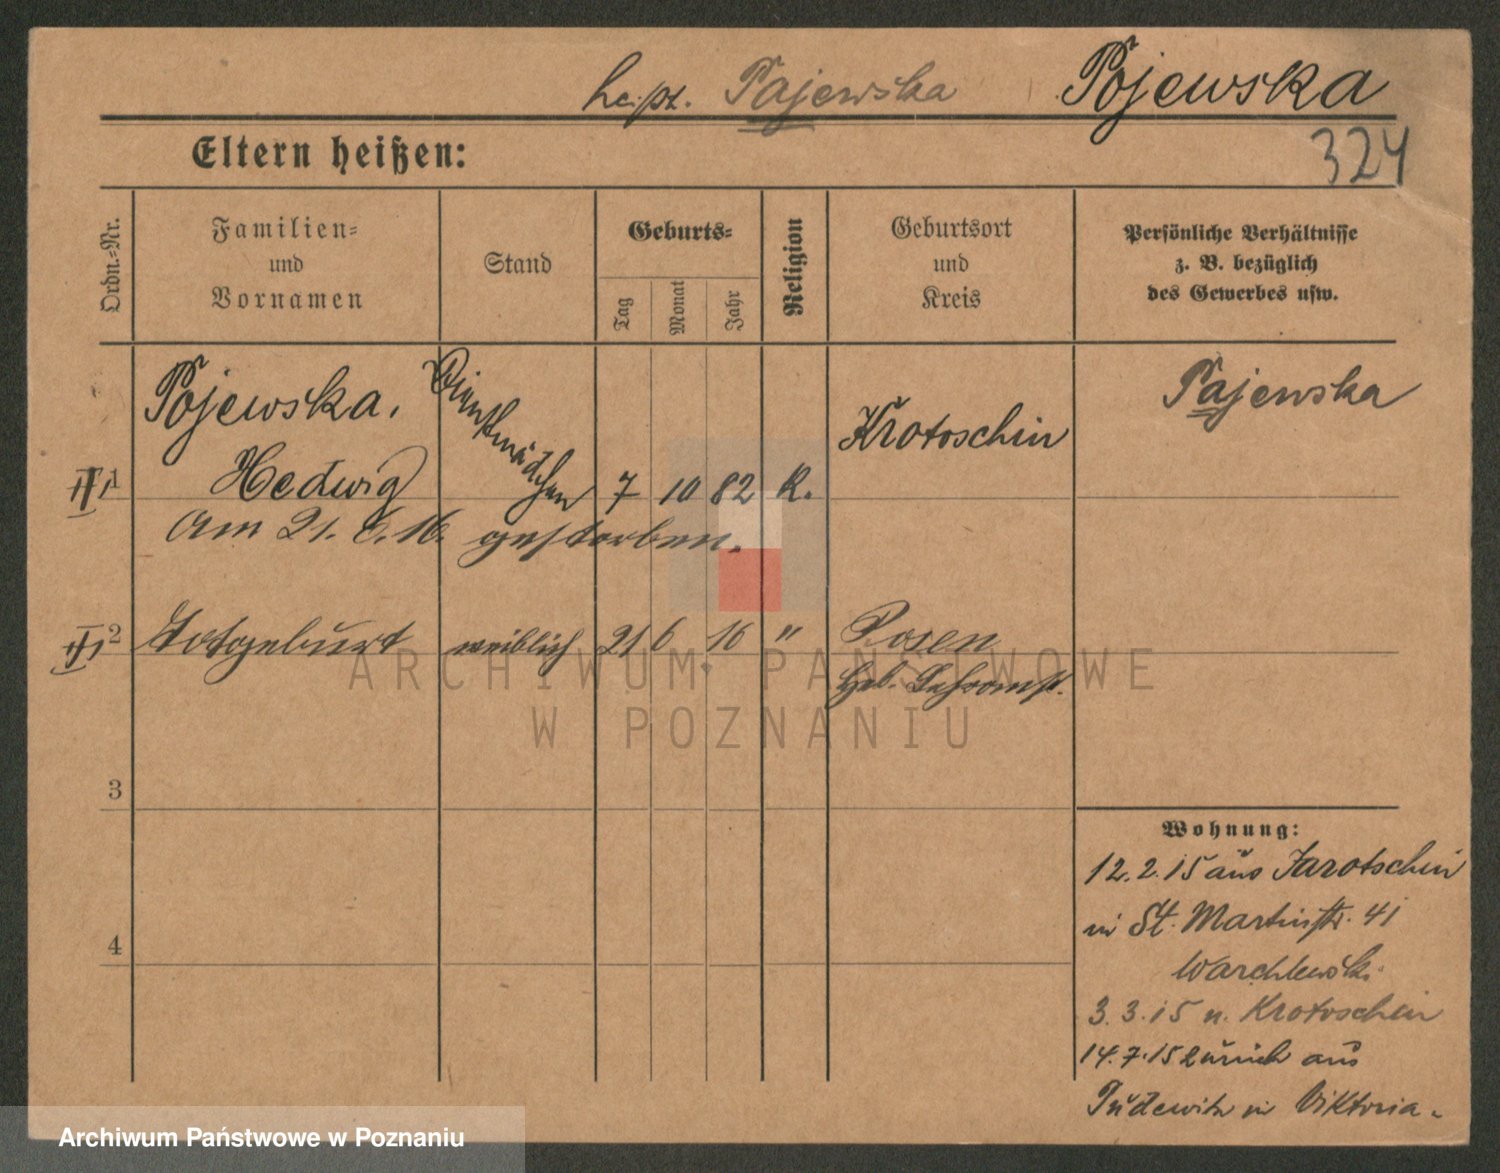 heißt. Pajewska Pojewska
324
Eltern heißen:
Ordn.-Nr.
Familien-
und
Vornamen
Stand
Geburts-
Tag
Monat
Jahr
Religion
Geburtsort
und
Kreis
Persönliche Verhältnisse
z. B. bezüglich
des Gewerbes usw.
Pojewska.
Dienstmädchen
Krotoschin
Pajewska
1 Hedwig 7 10 82 K.
Am 21. 6. 16. gestorben.
2 Totgeburt weiblich 21 6 16 " Posen
Geb.
3
4
Wohnung:
12.2.15 aus Jarotschin
in St. Martinstr. 41
Warchlewski
3.3.15 n. Krotoschin
14.7.15 zurück aus
Pudewitz in Viktoria-
ARCHIWUM PAŃSTWOWE
W POZNANIU
Archiwum Państwowe w Poznaniu